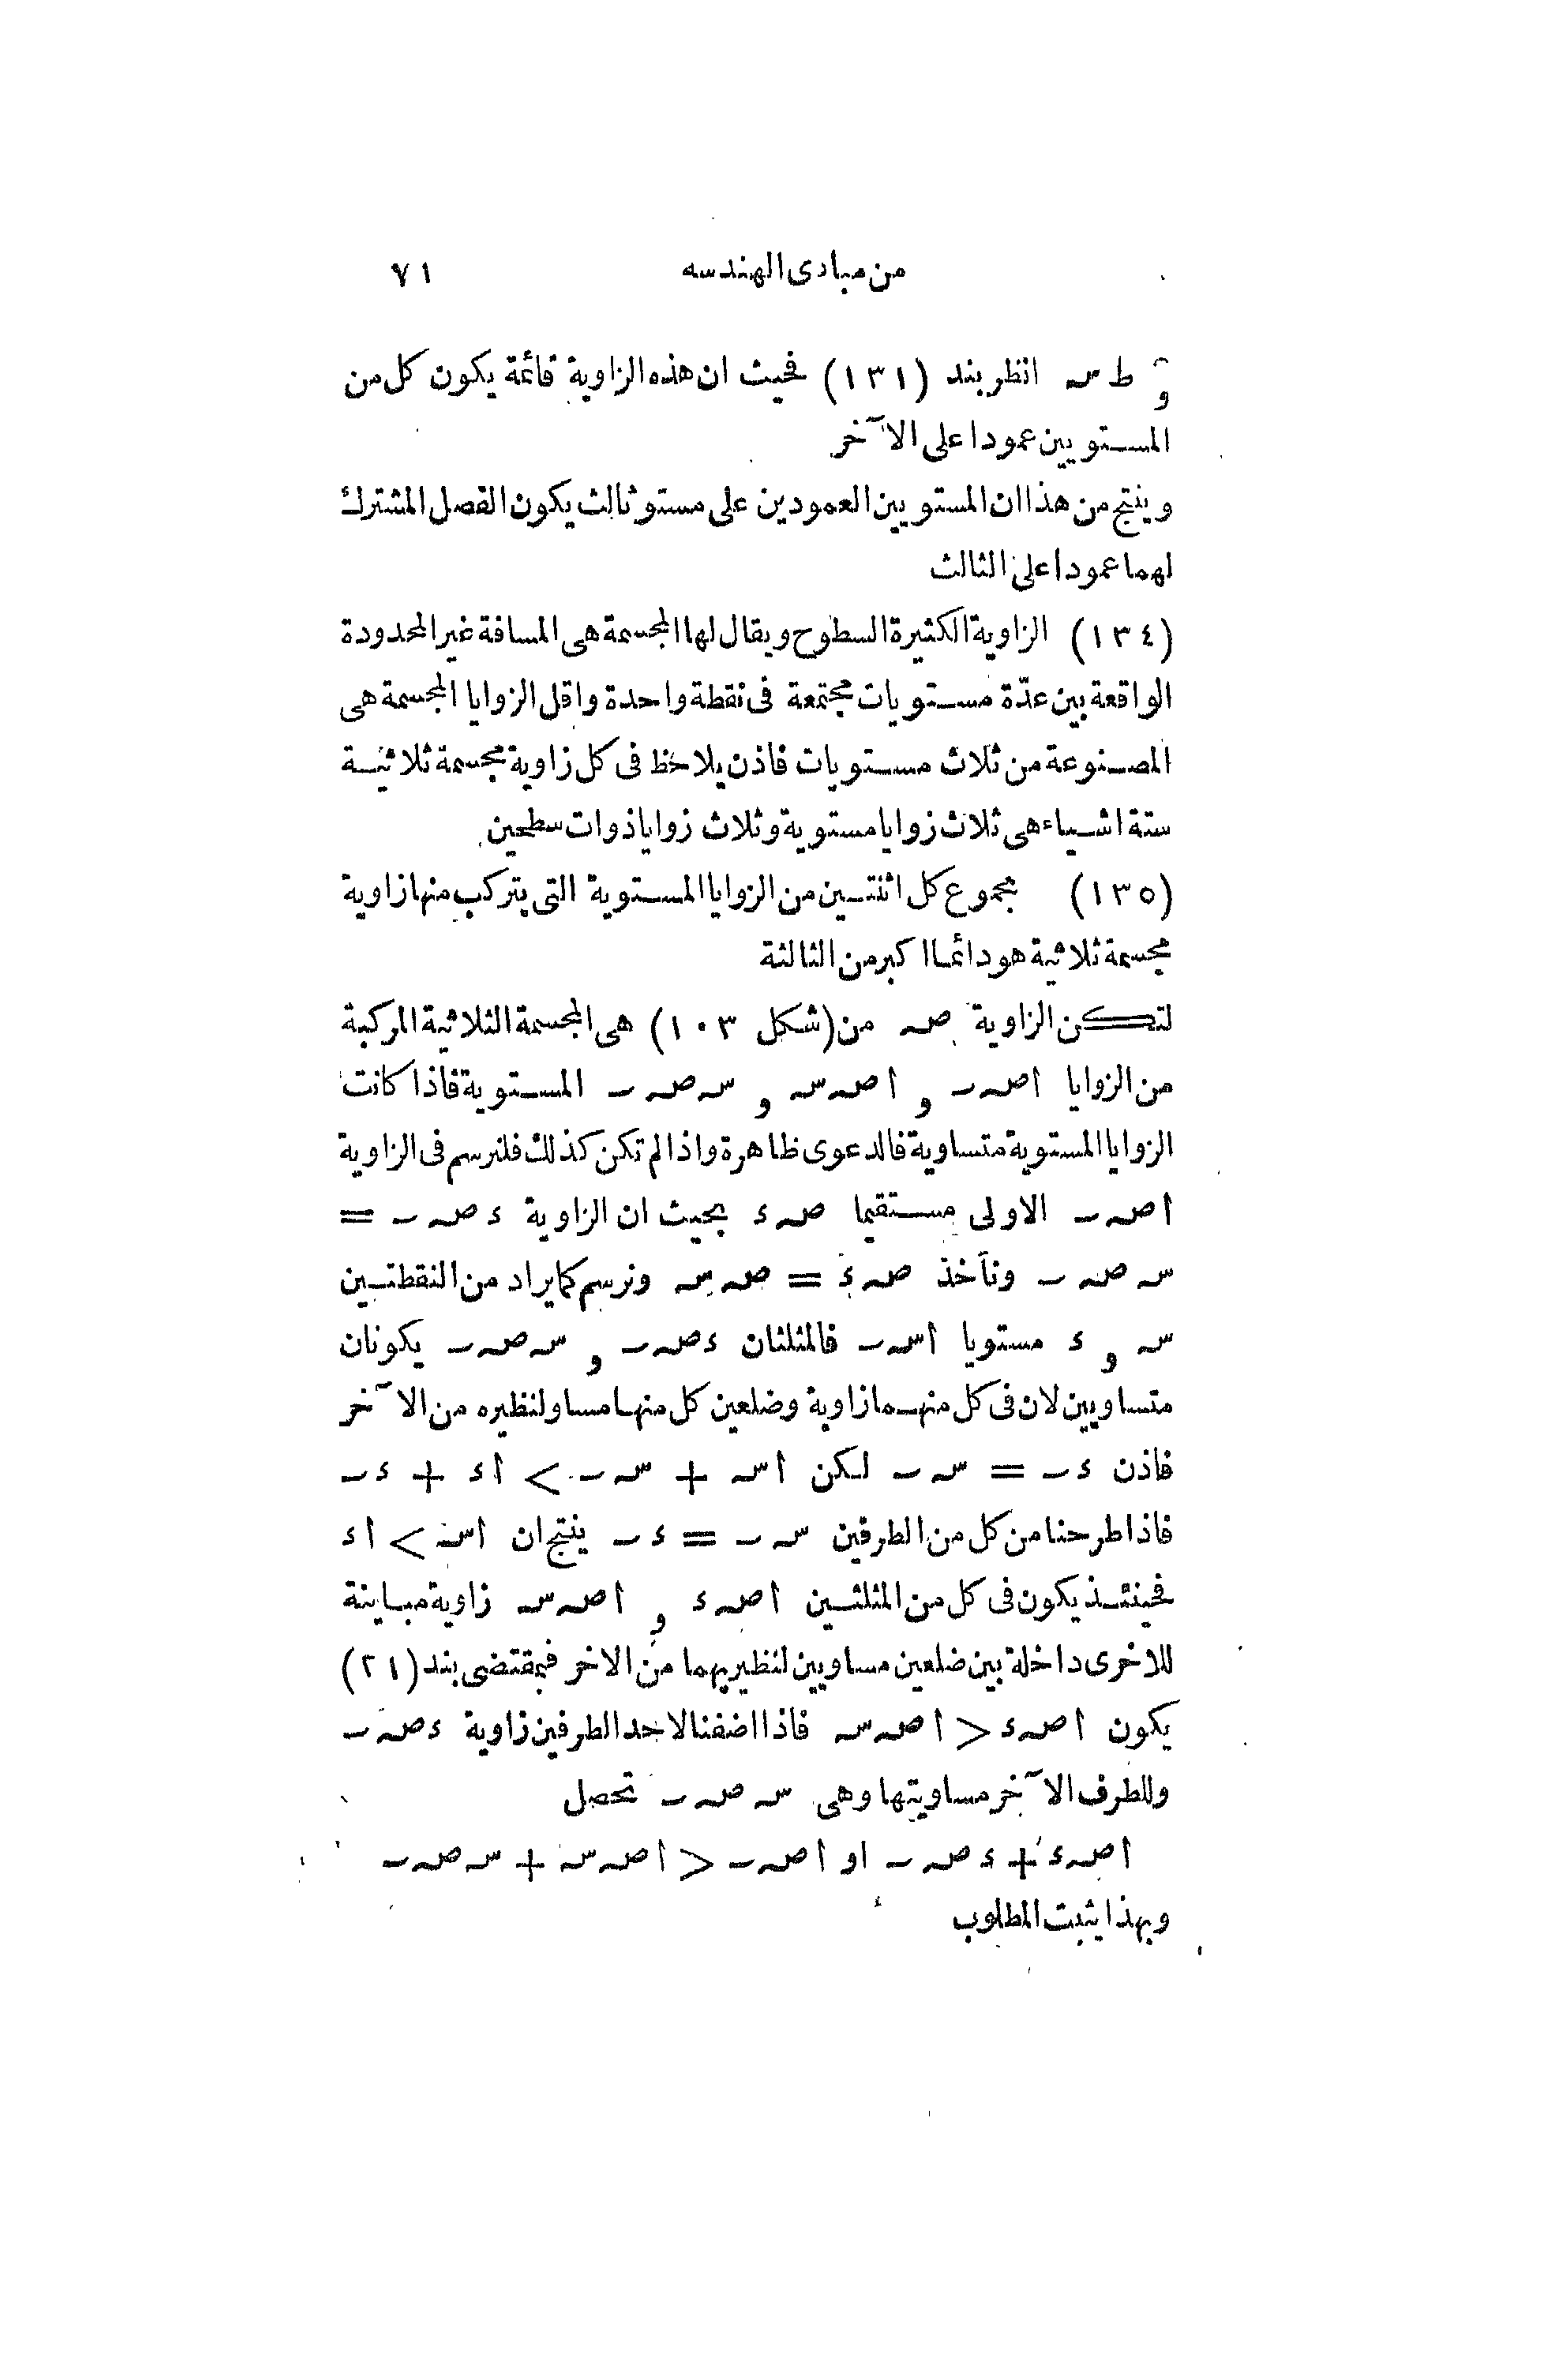 من مبادى الهندسه ٧١
و ط سـ انظر بند (١٣١) فحيث ان هذه الزاوية قائمة يكون كل من
المستويين عمودا على الآخر
وينتج من هذا ان المستويين العمودين على مستو ثالث يكون الفصل المشترك
لهما عمودا على الثالث
(١٣٤) الزاوية الكثيرة السطوح ويقال لها المجسمة هى المسافة غير المحدودة
الواقعة بين عدّة مستويات مجتمعة فى نقطة واحدة واقل الزوايا المجسمة هى
المصنوعة من ثلاث مستويات فاذن يلاحظ فى كل زاوية مجسمة ثلاثية
ستة اشياء هى ثلاث زوايا مستوية وثلاث زوايا ذوات سطحين
(١٣٥) مجموع كل اثنتين من الزوايا المستوية التى يتركب منها زاوية
مجسمة ثلاثية هو دائما اكبر من الثالثة
لتكن الزاوية صـ من (شكل ١٠٣) هى المجسمة الثلاثية المركبة
من الزوايا اصـ ٮ و اصـ سـ و سـ صـ ٮ المستوية فاذا كانت
الزوايا المستوية متساوية فالدعوى ظاهرة واذا لم تكن كذلك فلنرسم فى الزاوية
اصـ ٮ الاولى مستقيما صـ ء بحيث ان الزاوية ء صـ ٮ =
سـ صـ ٮ ونأخذ صـ ء = صـ سـ ونرسم كما يراد من النقطتين
سـ و ء مستويا اسـ ٮ فالمثلثان ء صـ ٮ و سـ صـ ٮ يكونان
متساويين لان فى كل منهما زاوية وضلعين كل منها مساو لنظيره من الآخر
فاذن ء ٮ = سـ ٮ لكن اسـ + سـ ٮ > اء + ء ٮ
فاذا طرحنا من كل من الطرفين سـ ٮ = ء ٮ ينتج ان اسـ > اء
فحينئذ يكون فى كل من المثلثين اصـ ء و اصـ سـ زاوية مباينة
للاخرى داخلة بين ضلعين مساويين لنظيريهما من الاخر فبمقتضى بند (٢١)
يكون اصـ ء < اصـ سـ فاذا اضفنا لاحد الطرفين زاوية ء صـ ٮ
وللطرف الآخر مساويتها وهى سـ صـ ٮ تحصل
اصـ ء + ء صـ ٮ او اصـ ٮ < اصـ سـ + سـ صـ ٮ
وبهذا يثبت المطلوب